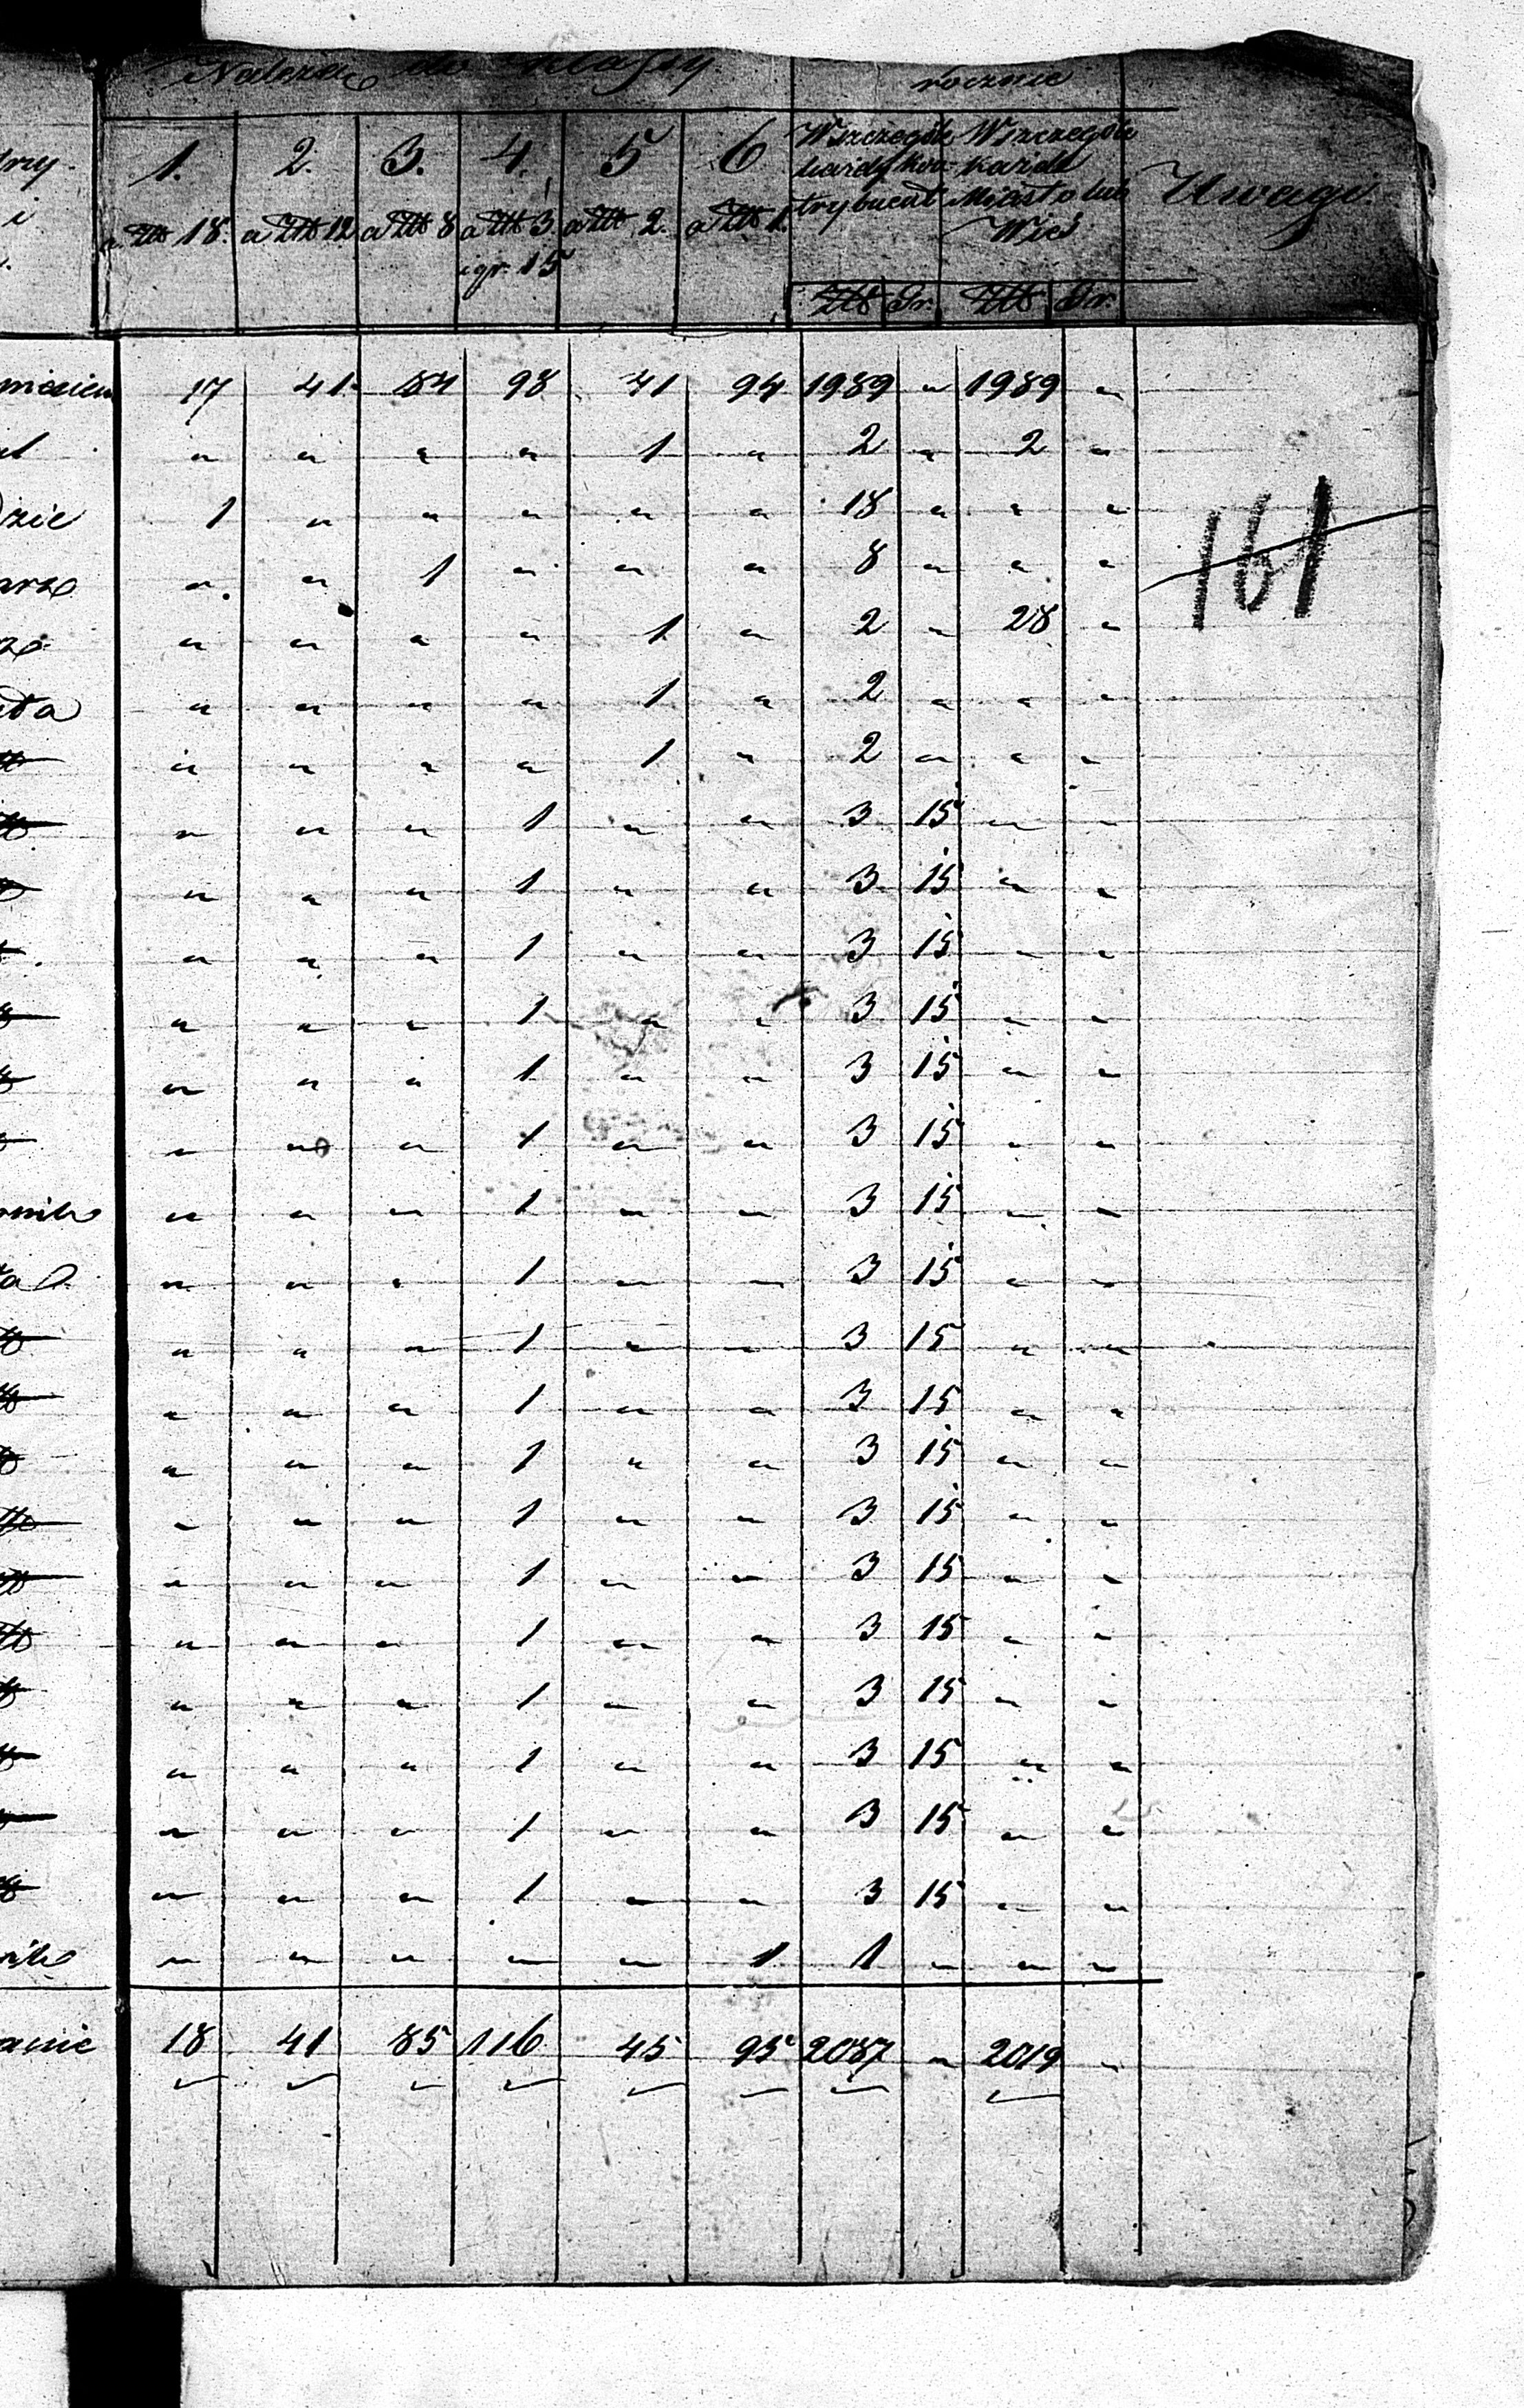 Należą do klassy rocznie
1. 2. 3. 4. 5 6 Wszczególe Wszczególe Uwagi.
każdy Kon- każde
trybuent Miasto lub
Wieś
a Złt 18. a Złt 12 a Złt 8 a Złt 3. a Złt. 2. a Złt 1.
i gr. 15
Złt Gr. Złt Gr.
17 41 84 98 41 94 1989 " 1989 "
" " " " 1 " 2 " 2 "
1 " " " " " 18 " " "
" " 1 " " " 8 " " "
161
" " " " 1 " 2 " 28 "
" " " " 1 " 2 " " "
" " " " 1 " 2 " " "
" " " 1 " " 3 15 " "
" " " 1 " " 3 15 " "
" " " 1 " " 3 15 " "
" " " 1 " " 3 15 " "
" " " 1 " " 3 15 " "
" " " 1 " " 3 15 " "
" " " 1 " " 3 15 " "
" " " 1 " " 3 15 " "
" " " 1 " " 3 15 " "
" " " 1 " " 3 15 " "
" " " 1 " " 3 15 " "
" " " 1 " " 3 15 " "
" " " 1 " " 3 15 " "
" " " 1 " " 3 15 " "
" " " 1 " " 3 15 " "
" " " 1 " " 3 15 " "
" " " 1 " " 3 15 " "
" " " 1 " " 3 15 " "
" " " " " 1 1 " " "
18 41 85 116 45 95 2087 " 2019 "